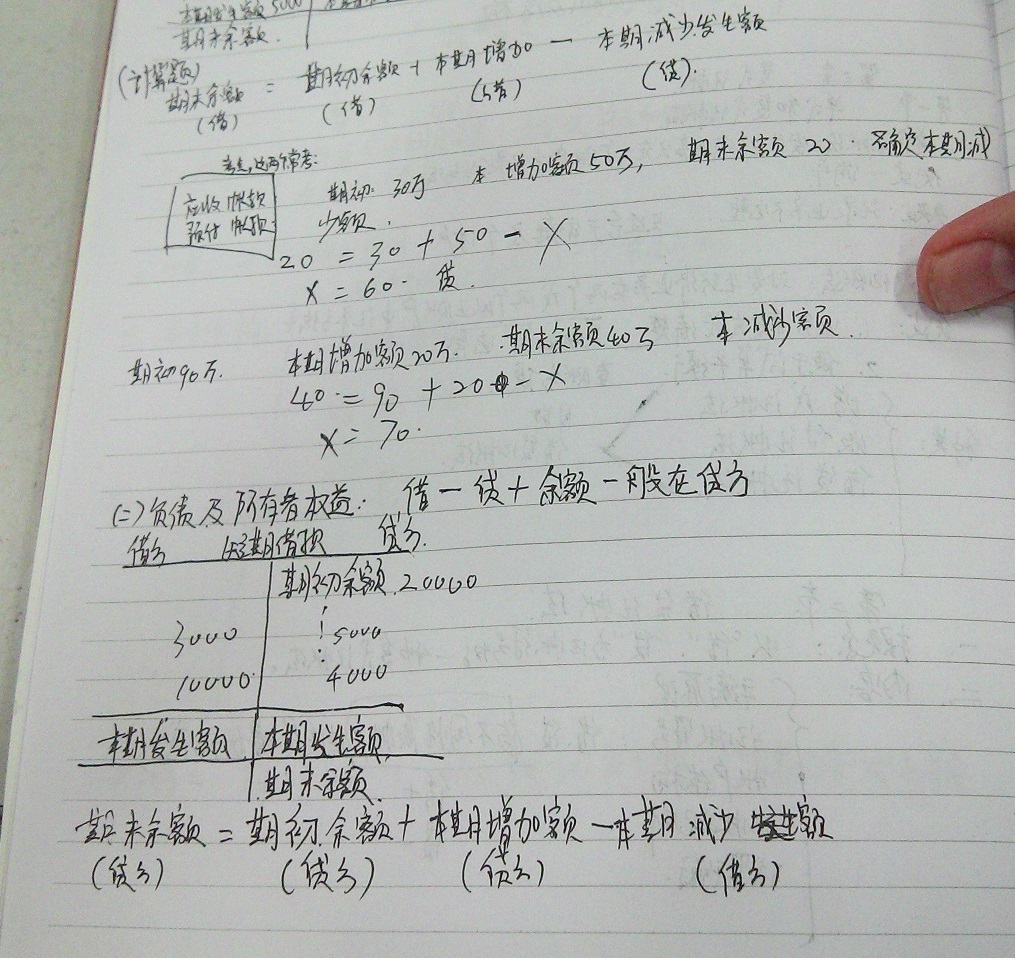 本期发生额 5000
期末余额.
(计算题)
期末余额 = 期初余额 + 本期增加 - 本期减少发生额
(借) (借) (借) (贷).
考点,这两个常考:
应收帐款
预付帐款
期初 30万 本 增加额 50万, 期末余额 20. 确定本期减
少额.
20 = 30 + 50 - X
X = 60. 贷.
期初90万. 本期增加额20万. 期末余额40万 本减少额.
40 = 90 + 20 - X
X = 70.
(二)负债及所有者权益: 借一贷十 余额一般在贷方
借方 短期借款 贷方.
期初余额.20000
3000 5000
10000 4000
本期发生额 本期发生额
期末余额.
期末余额 = 期初余额 + 本期增加额 - 本期减少 额
(贷方) (贷方) (贷方) (借方)